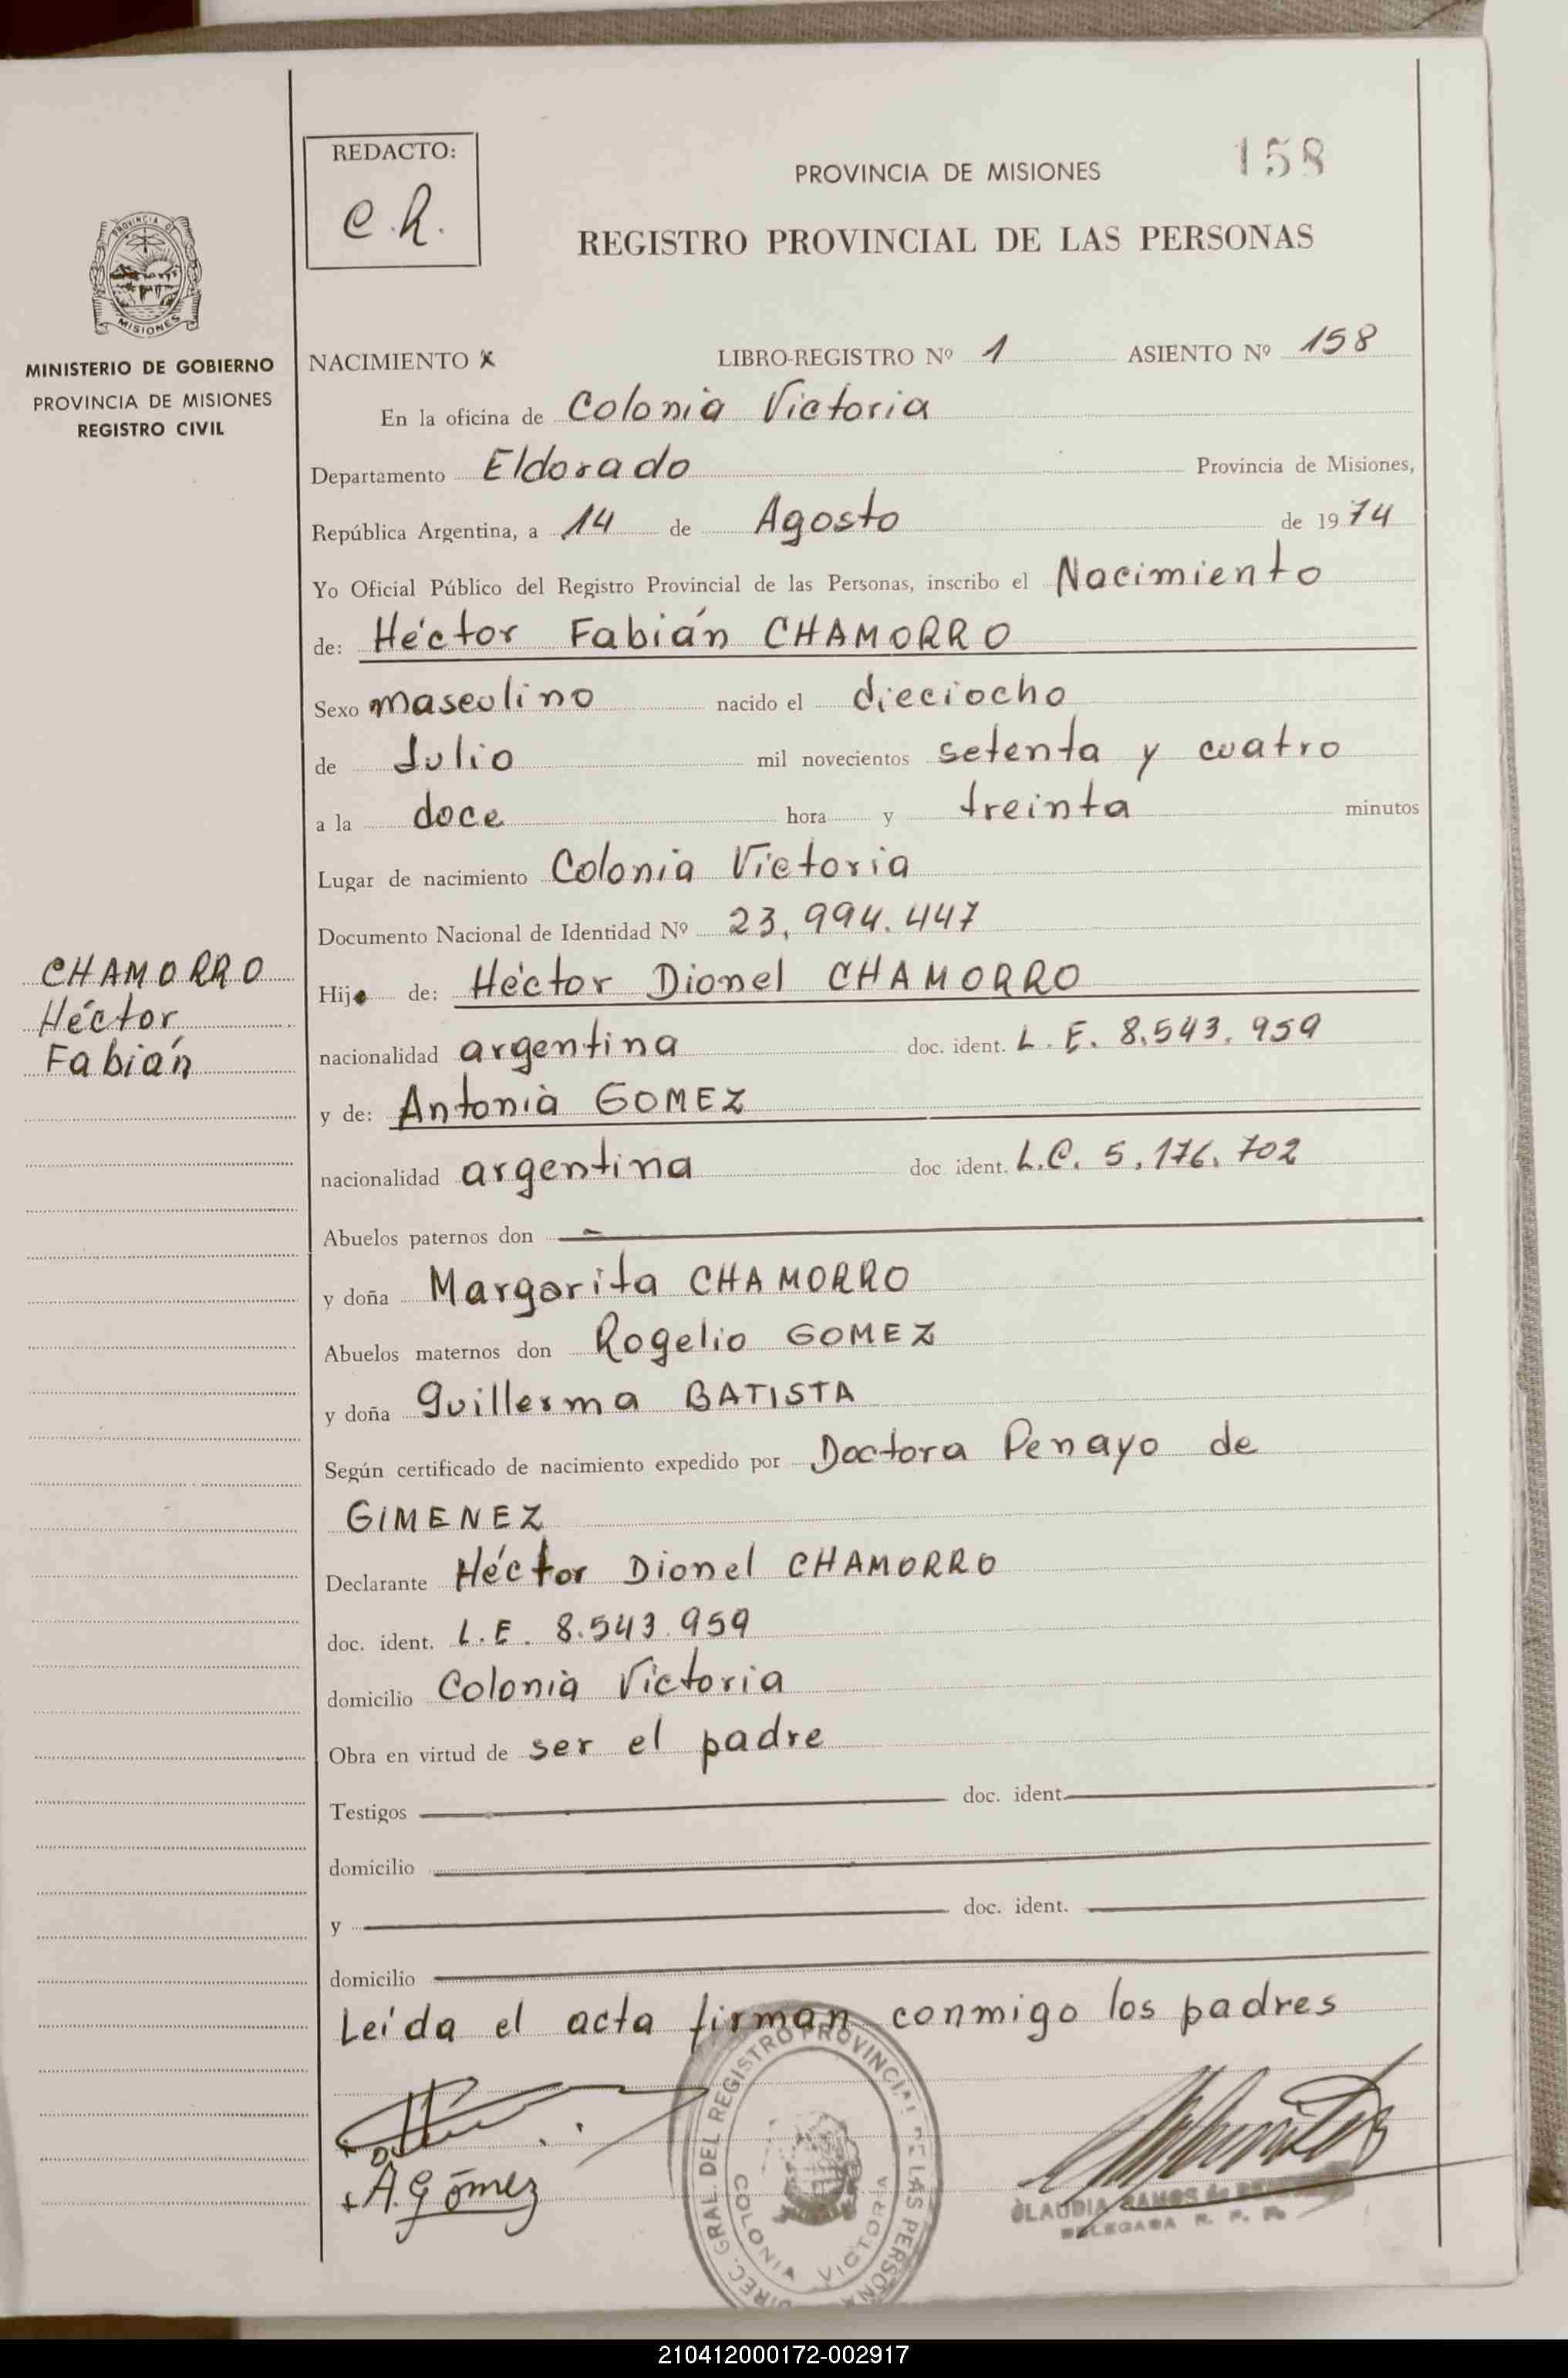 REDACTO:
C.R.
PROVINCIA DE MISIONES
158
REGISTRO PROVINCIAL DE LAS PERSONAS
PROVINCIA DE
MISIONES
MINISTERIO DE GOBIERNO
PROVINCIA DE MISIONES
REGISTRO CIVIL
NACIMIENTO X LIBRO-REGISTRO Nº 1 ASIENTO Nº 158
En la oficina de Colonia Victoria
Departamento Eldorado Provincia de Misiones,
República Argentina, a 14 de Agosto de 1974
Yo Oficial Público del Registro Provincial de las Personas, inscribo el Nacimiento
de: Héctor Fabián CHAMORRO
Sexo masculino nacido el dieciocho
de Julio mil novecientos setenta y cuatro
a la doce hora y treinta minutos
Lugar de nacimiento Colonia Victoria
Documento Nacional de Identidad Nº 23,994.447
CHAMORRO
Héctor
Fabián
Hijo de: Héctor Dionel CHAMORRO
nacionalidad argentina doc. ident. L.E. 8.543.959
y de: Antonia GOMEZ
nacionalidad argentina doc ident. L.C. 5.176.702
Abuelos paternos don
y doña Margarita CHAMORRO
Abuelos maternos don Rogelio GOMEZ
y doña Guillerma BATISTA
Según certificado de nacimiento expedido por Doctora Penayo de
GIMENEZ
Declarante Héctor Dionel CHAMORRO
doc. ident. L.E. 8.543.959
domicilio Colonia Victoria
Obra en virtud de ser el padre
Testigos doc. ident.
domicilio
y doc. ident.
domicilio
Leída el acta firman conmigo los padres
A. Gómez
DIREC. GRAL. DEL REGISTRO PROVINCIAL DE LAS PERSONAS
COLONIA VICTORIA
CLAUDIA RAMOS de
DELEGADA R. P. P.
210412000172-002917